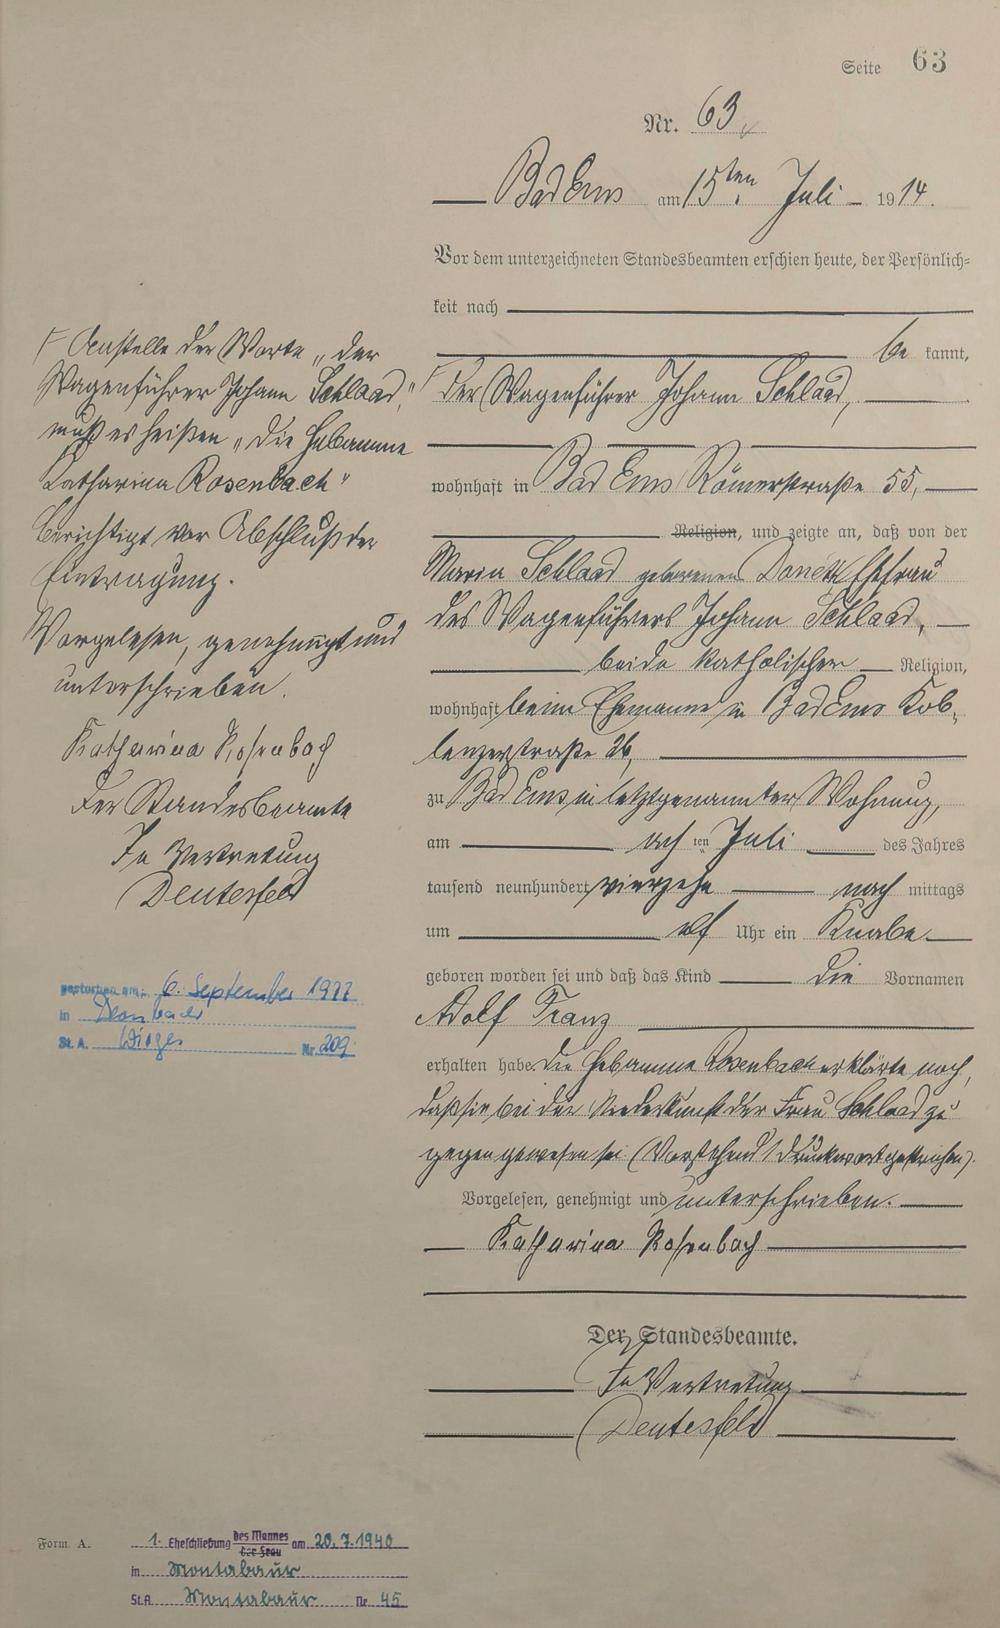 Seite 63
Nr. 63.
Bad Ems am 15ten Juli 1914.
Vor dem unterzeichneten Standesbeamten erschien heute, der Persönlich-
keit nach
be kannt,
Γ der Wagenführer Johann Schlaad,
wohnhaft in Bad Ems Römerstraße 55,
Religion, und zeigte an, daß von der
Maria Schlaad geborenen Ehefrau
des Wagenführers Johann Schlaad,
beide katholischer Religion,
wohnhaft beim Ehemanne in Bad Ems Kob-
lenzerstraße 26,
zu Bad Ems in letztgenannter Wohnung,
am ach ten Juli des Jahres
tausend neunhundert vierzehn nach mittags
um elf Uhr ein Knabe
geboren worden sei und daß das Kind die Vornamen
Adolf Franz
erhalten habe. Die Hebamme Rosenbach erklärte noch,
daß sie bei der Niederkunft der Frau Schlaad zu
gegen gewesen sei (Vorstehend 1 Druckwort gestrichen).
Vorgelesen, genehmigt und unterschrieben.
Katharina Rosenbach
Der Standesbeamte.
In Vertretung
Deutesfeld
Γ Anstelle der Worte „der
Wagenführer Johann Schlaad,"
muß es heißen „die Hebamme
Katharina Rosenbach"
Berichtigt vor Abschluß der
Eintragung.
Vorgelesen, genehmigt und
unterschrieben.
Katharina Rosenbach
Der Standesbeamte
In Vertretung
Deutesfeld
gestorben am: 6. September 1977
in
St. A. Nr. 209
Form A.
1. Eheschließung des Mannes der Frau am 20.7.1940
in Montabaur
St.A. Montabaur Nr. 45